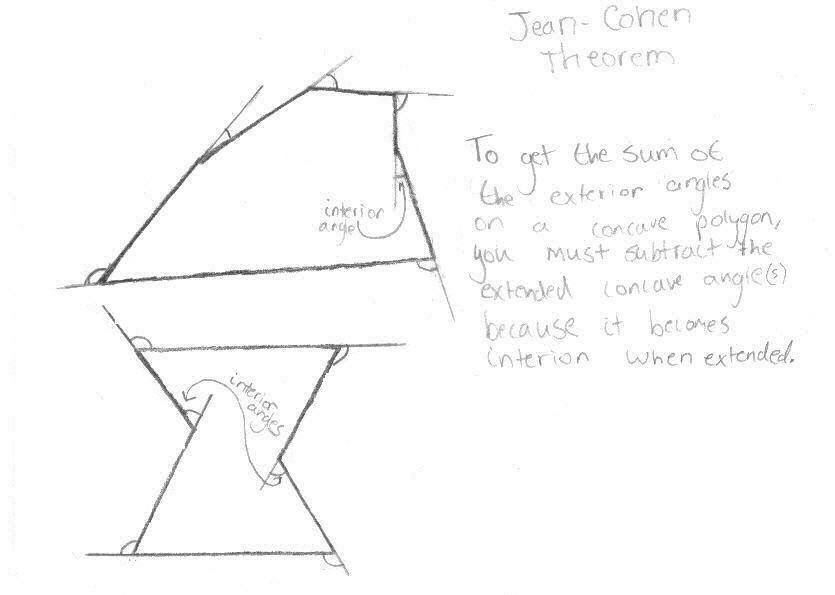 Jean-Cohen
Theorem
To get the sum of
the exterior angles
on a concave polygon,
you must subtract the
extended concave angle(s)
because it becomes
interion when extended.
interior
angle
interior
angles